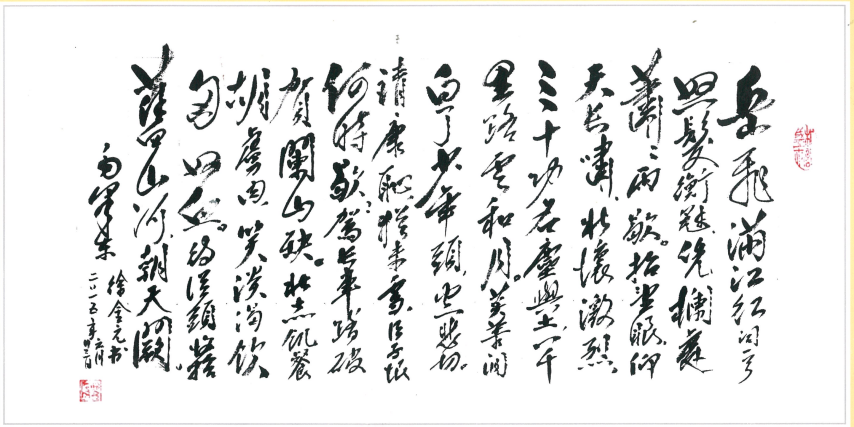 岳飛 滿江红
怒髮衝冠、凭欄處
瀟瀟雨歇。抬望眼、仰
天長嘯、壯懷激烈
三十功名塵與土、八千
里路雲和月。莫等閒
白了少年頭、空悲切。
靖康恥、猶未雪、臣子恨
何時歇、駕長車踏破
賀蘭山缺。壯志飢餐
胡虜肉、笑談渴飲
匈奴血。待從頭收拾
舊山河、朝天闕。
毛澤东
徐金元书
二〇一五年六月廿